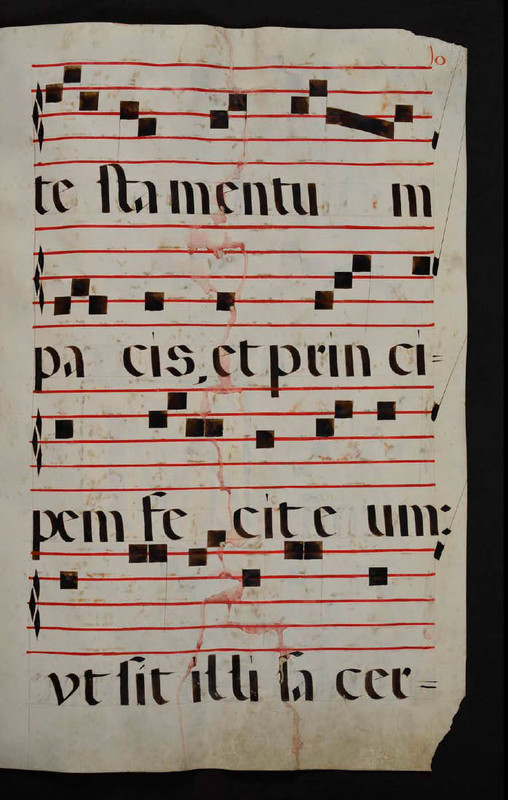 te sta mentu m
pa cis, et prin ci=
pem fe cit e um:
vt sit illi sa cer=